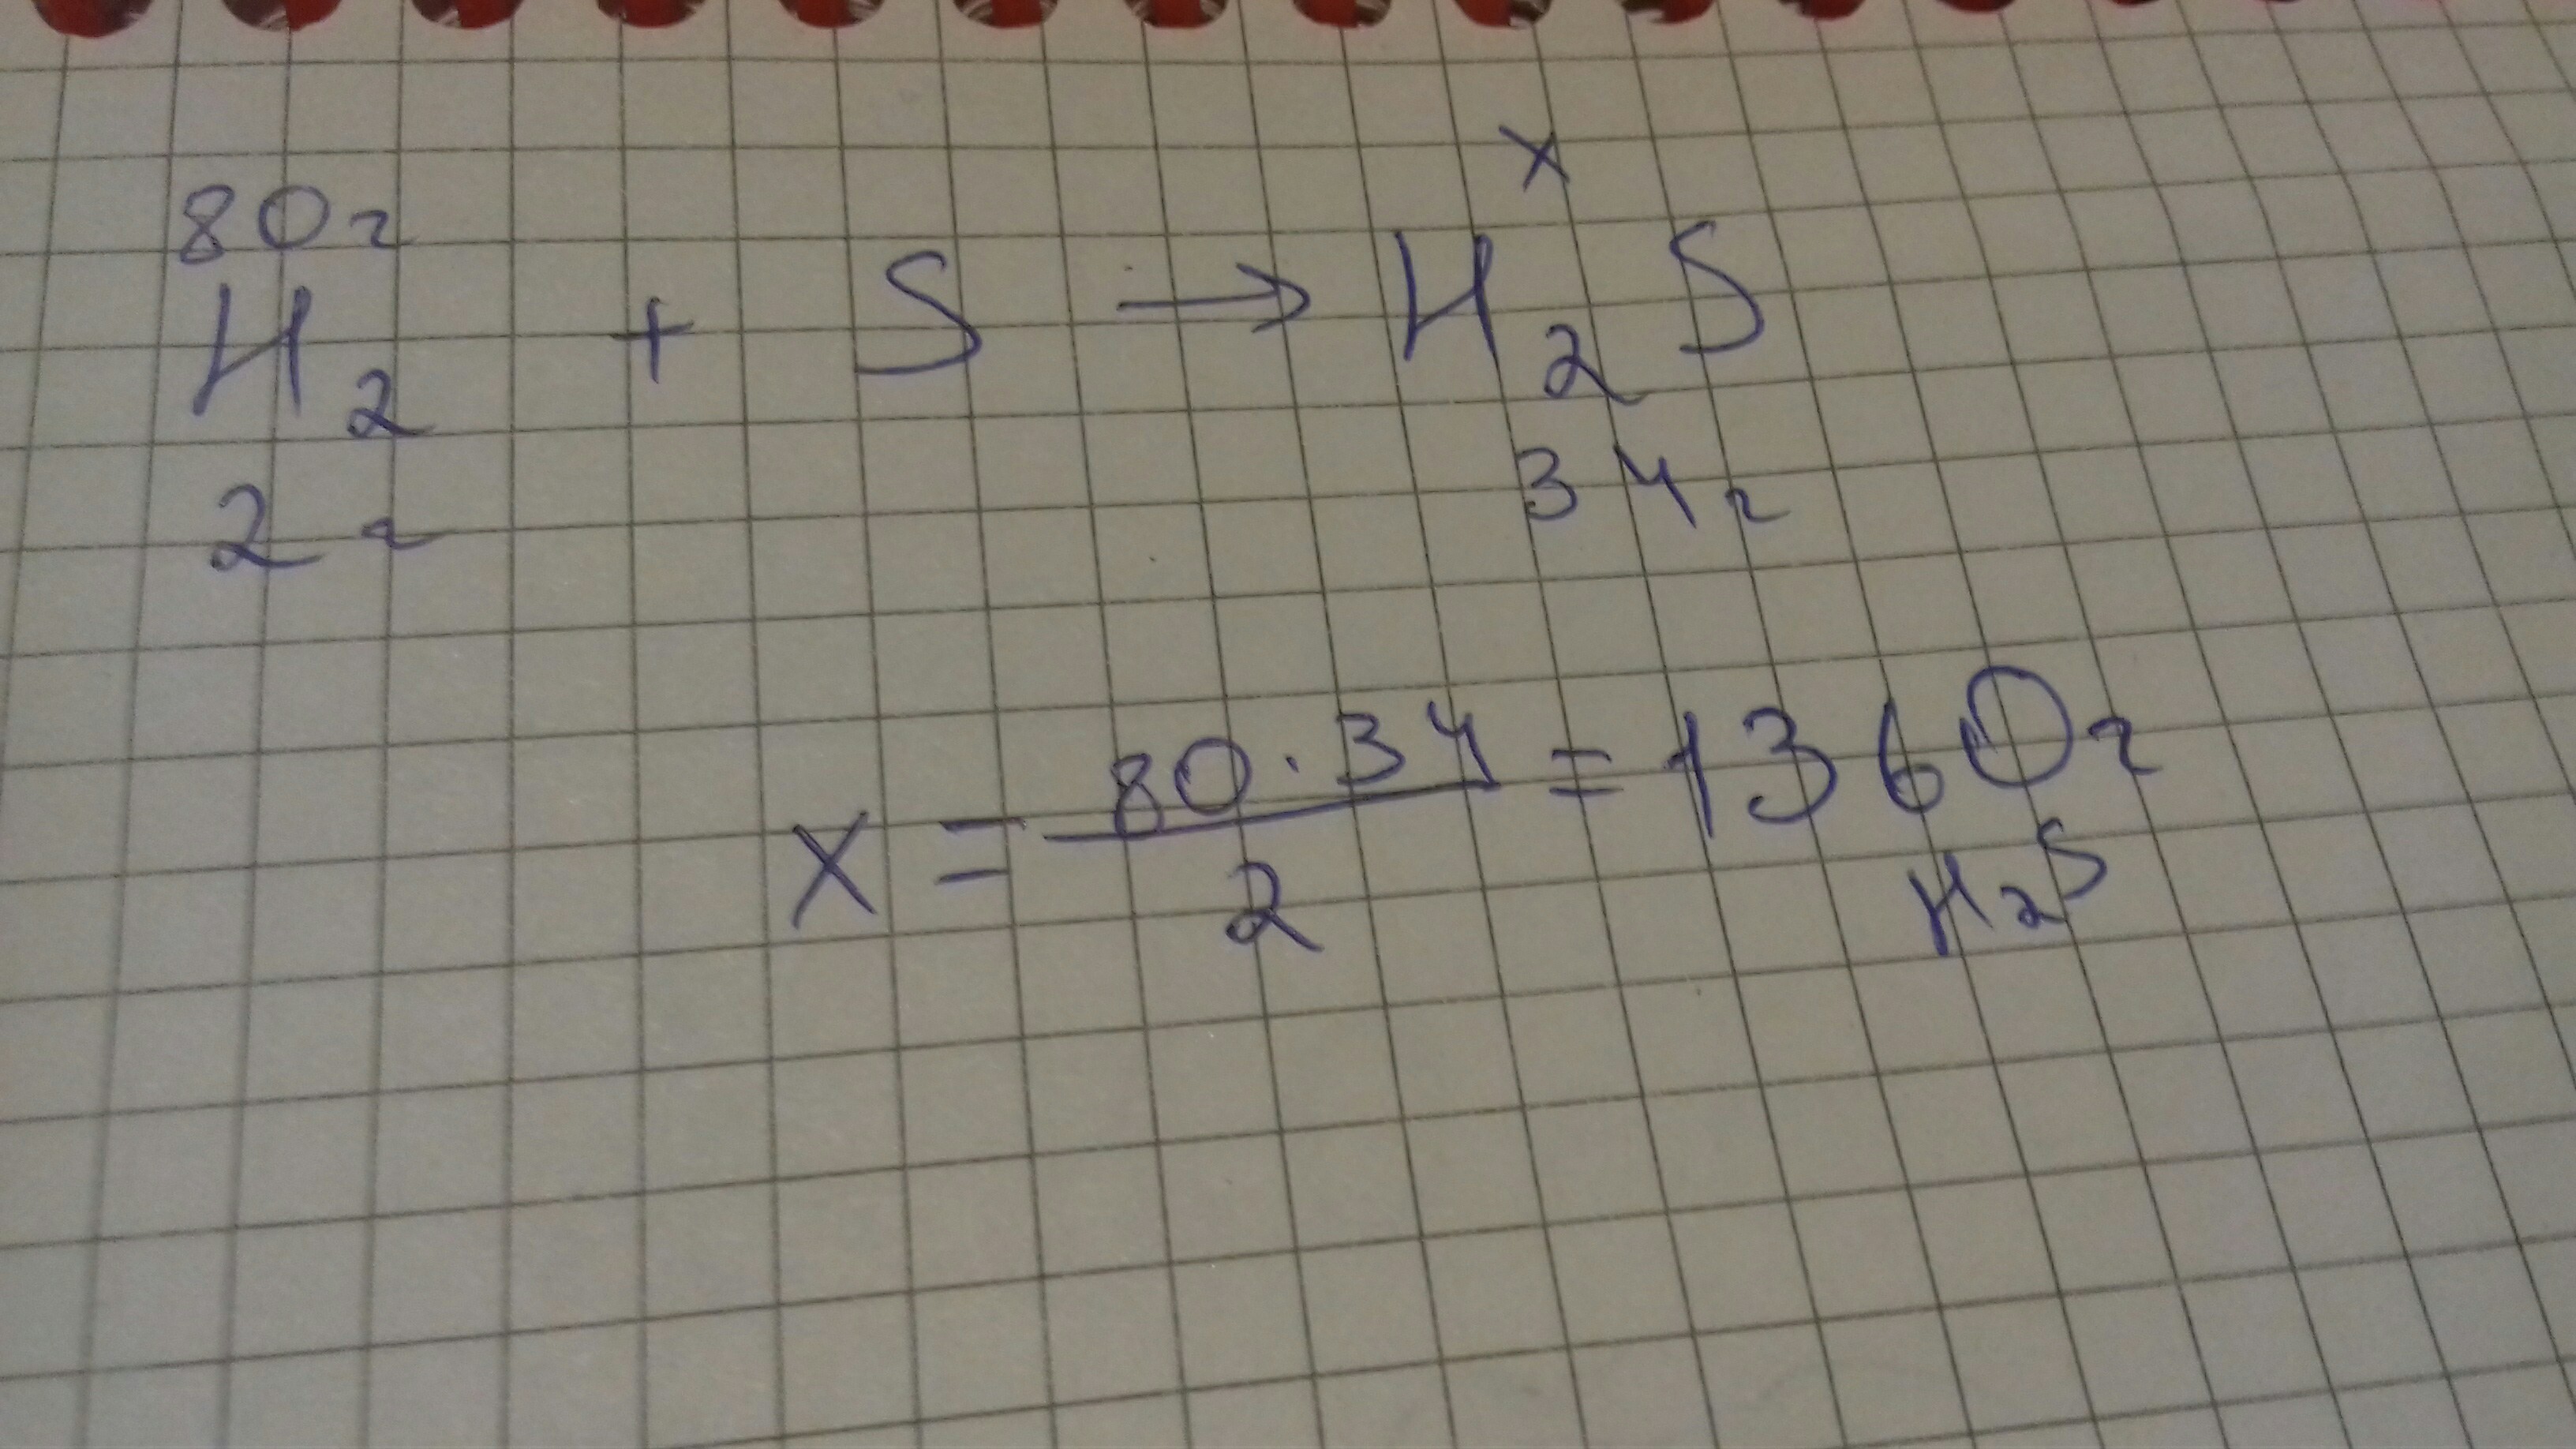 x
80г
H₂ + S → H₂S
2г 34г
x = 80·34/2 = 1360г
H₂S